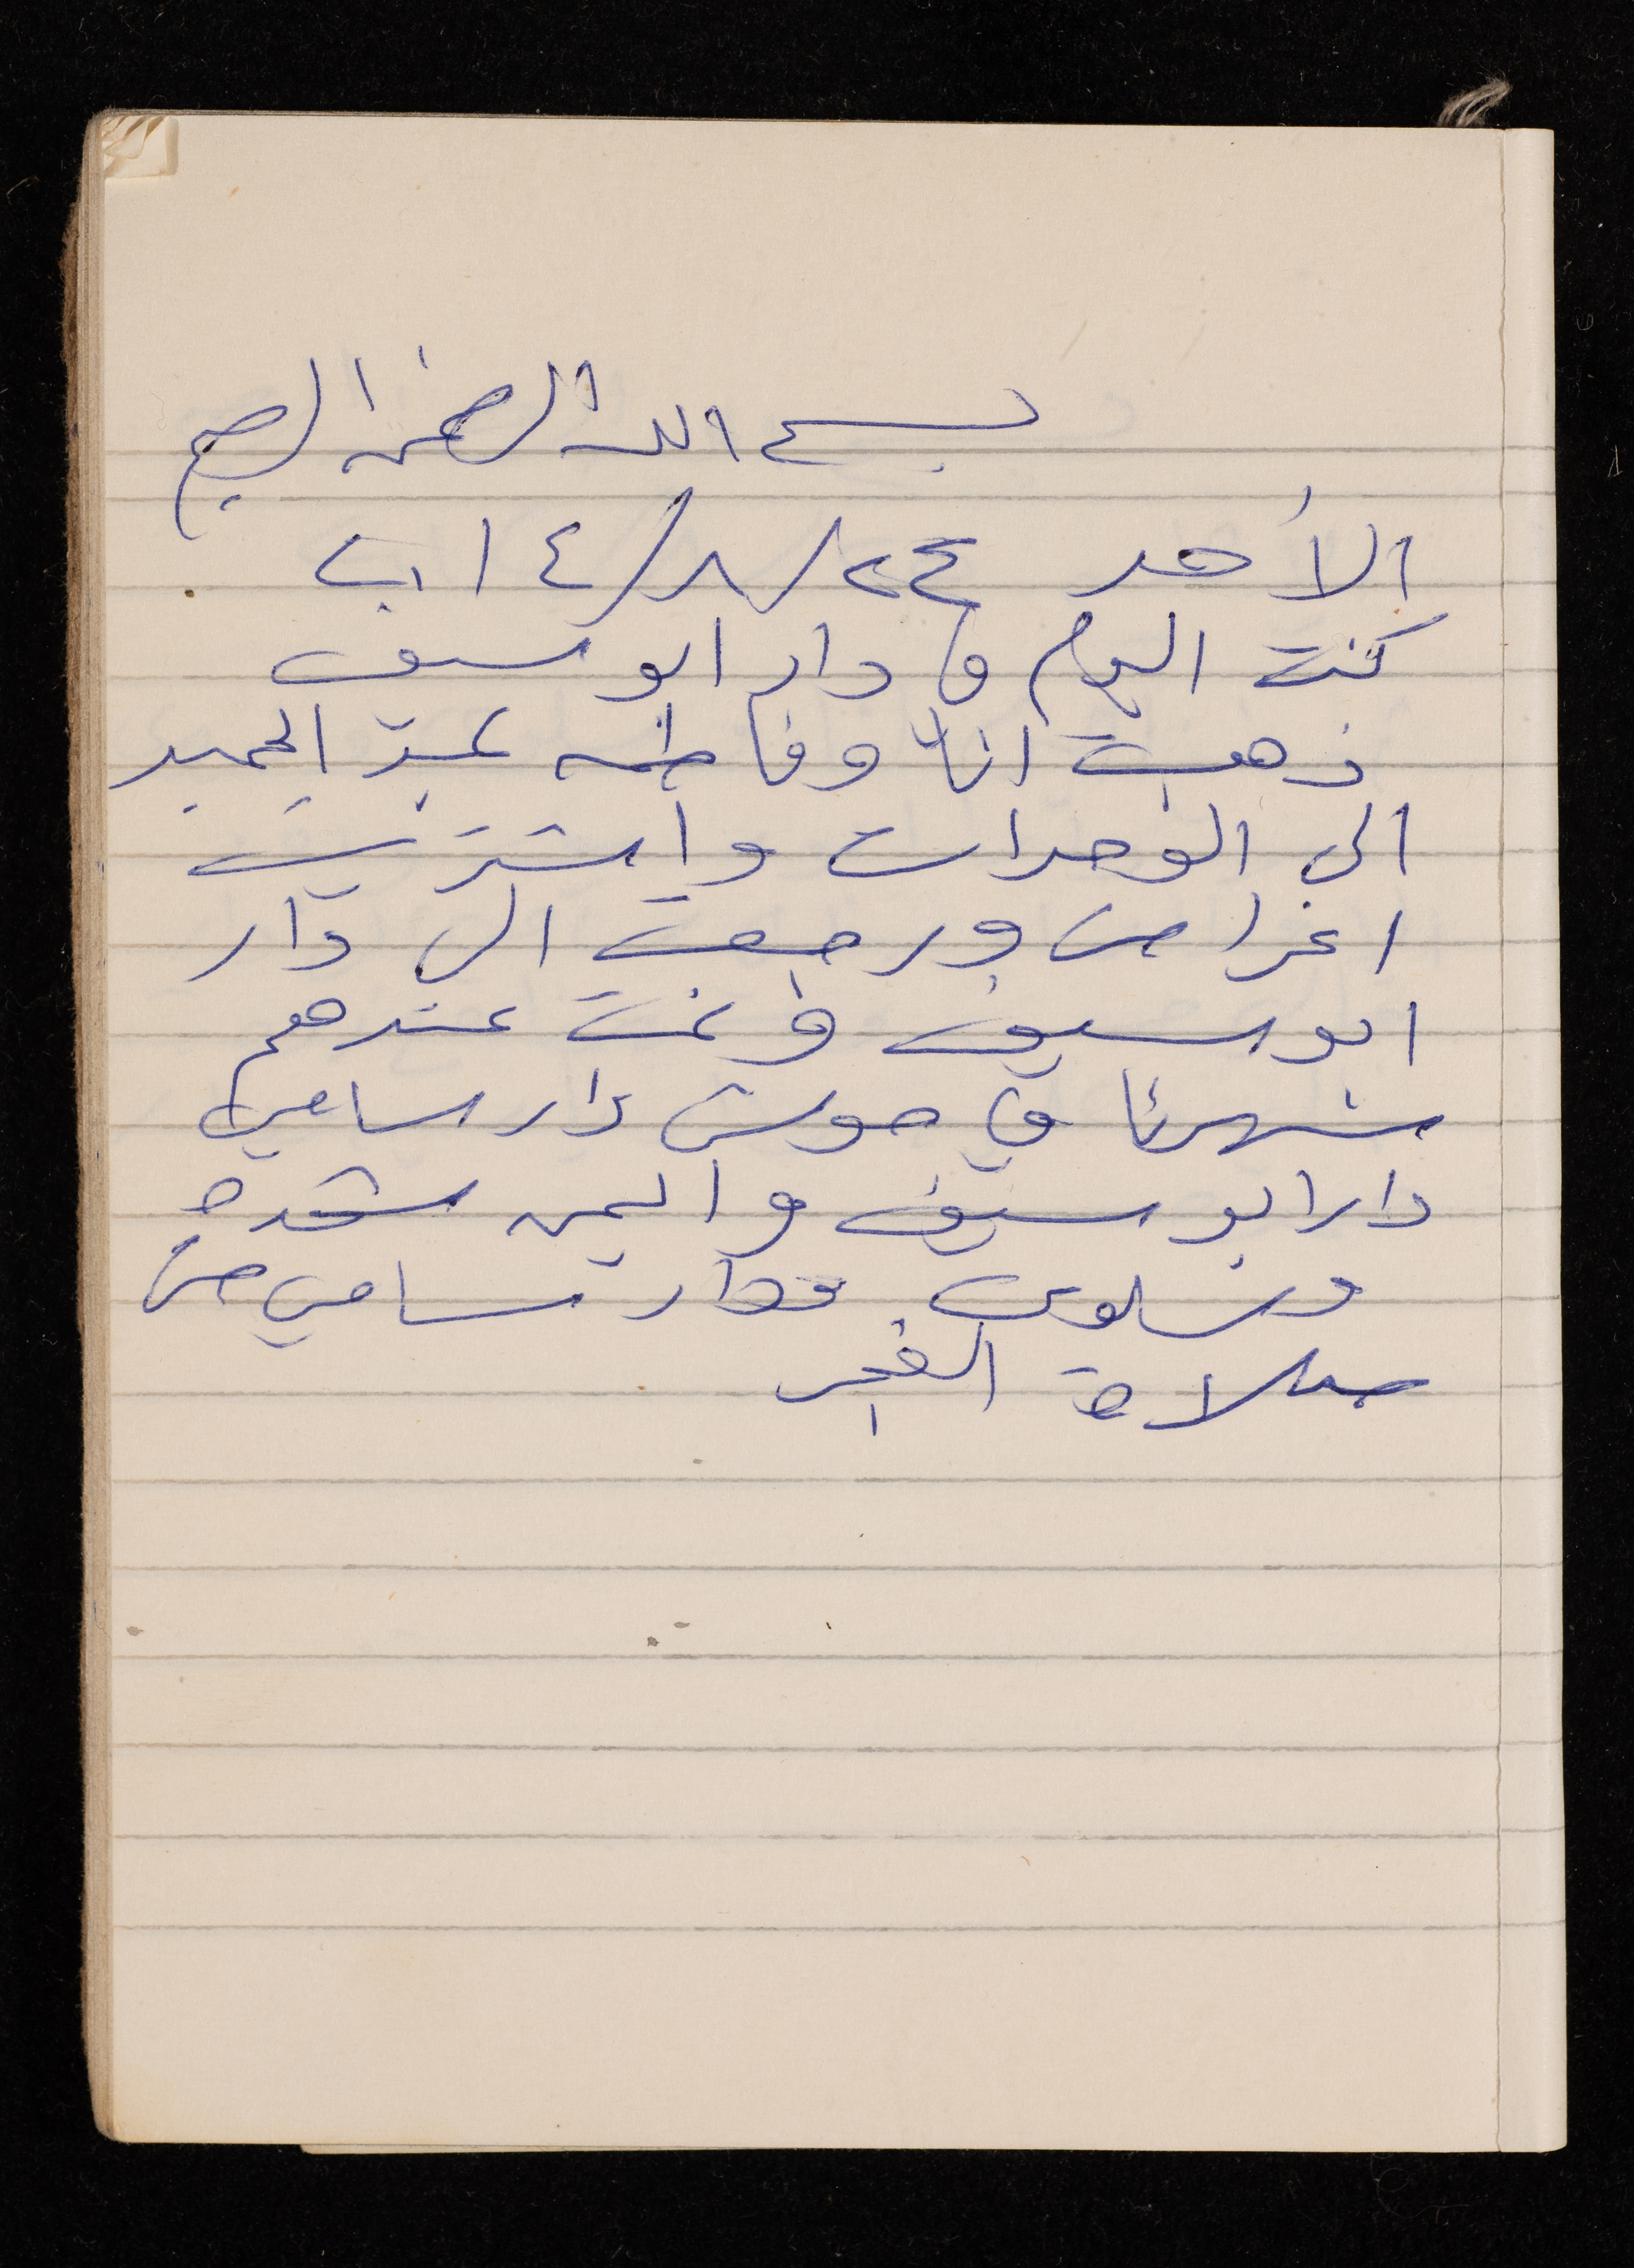 بسم الله الرحمن الرحيم
الأحد ٢٤/٨/٤ اب
كنت اليوم في دار ابو سيف
ذهبت انا وفاطمه عبد الحميد
الى الوحدات واشتريت
اغراض ورجعت الى دار
ابو سيف ونمت عندهم
سهرنا في حوش دار سامي
دار ابو سيف واليمن
وسلوى ودار سامي من
صلاة الفجر